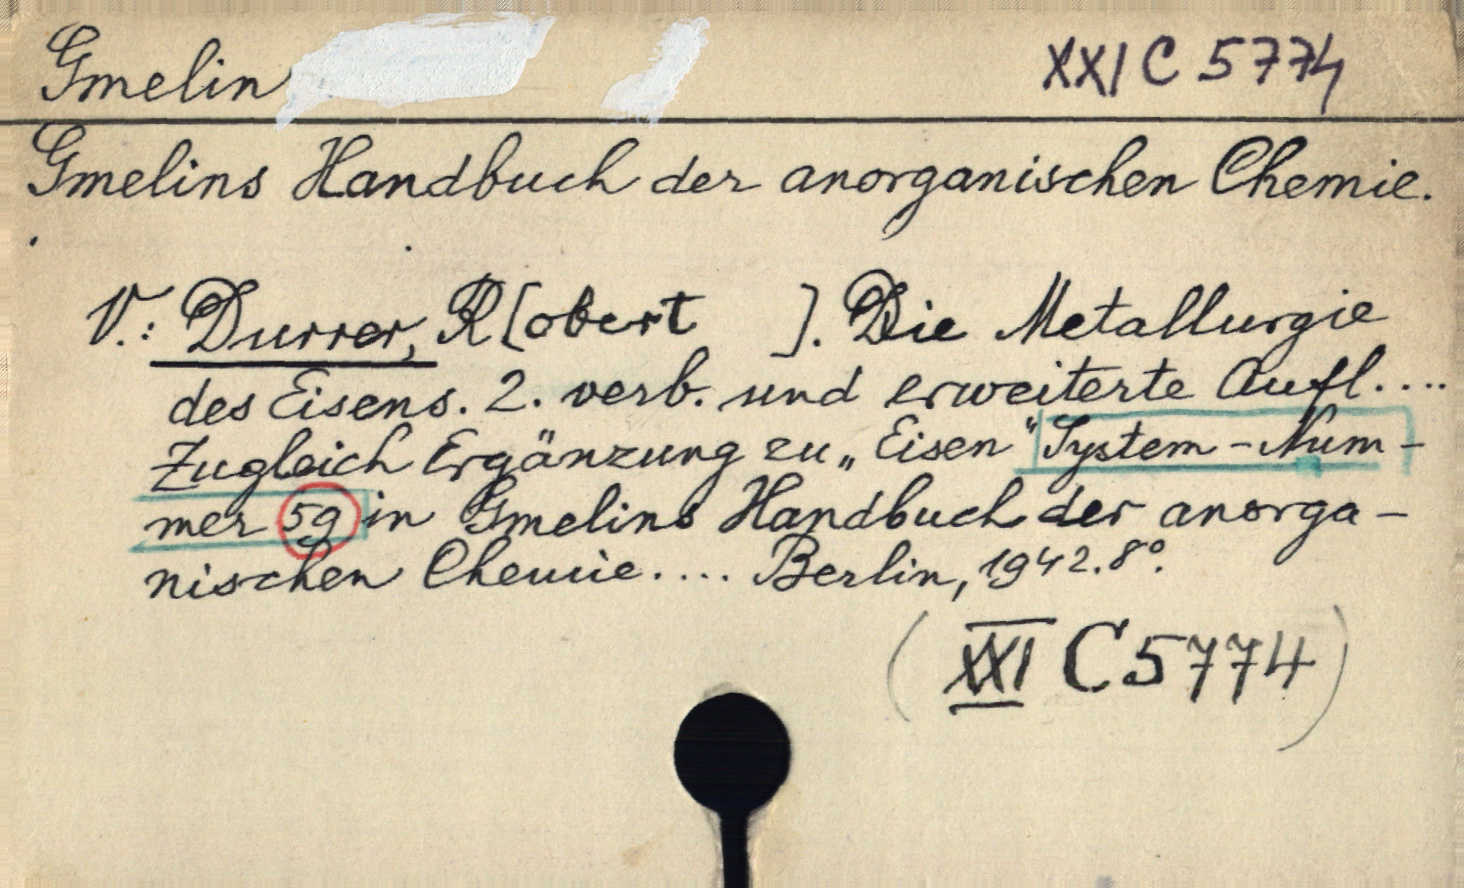 Gmelin XXI C 5774
Gmelins Handbuch der anorganischen Chemie.
V.: Durrer, R[obert ]. Die Metallurgie
des Eisens. 2. verb. und erweiterte Aufl....
Zugleich Ergänzung zu „Eisen" System-Num-
mer 59 in Gmelins Handbuch der anorga-
nischen Chemie.... Berlin, 1942. 8°.
(XXI C 5774)